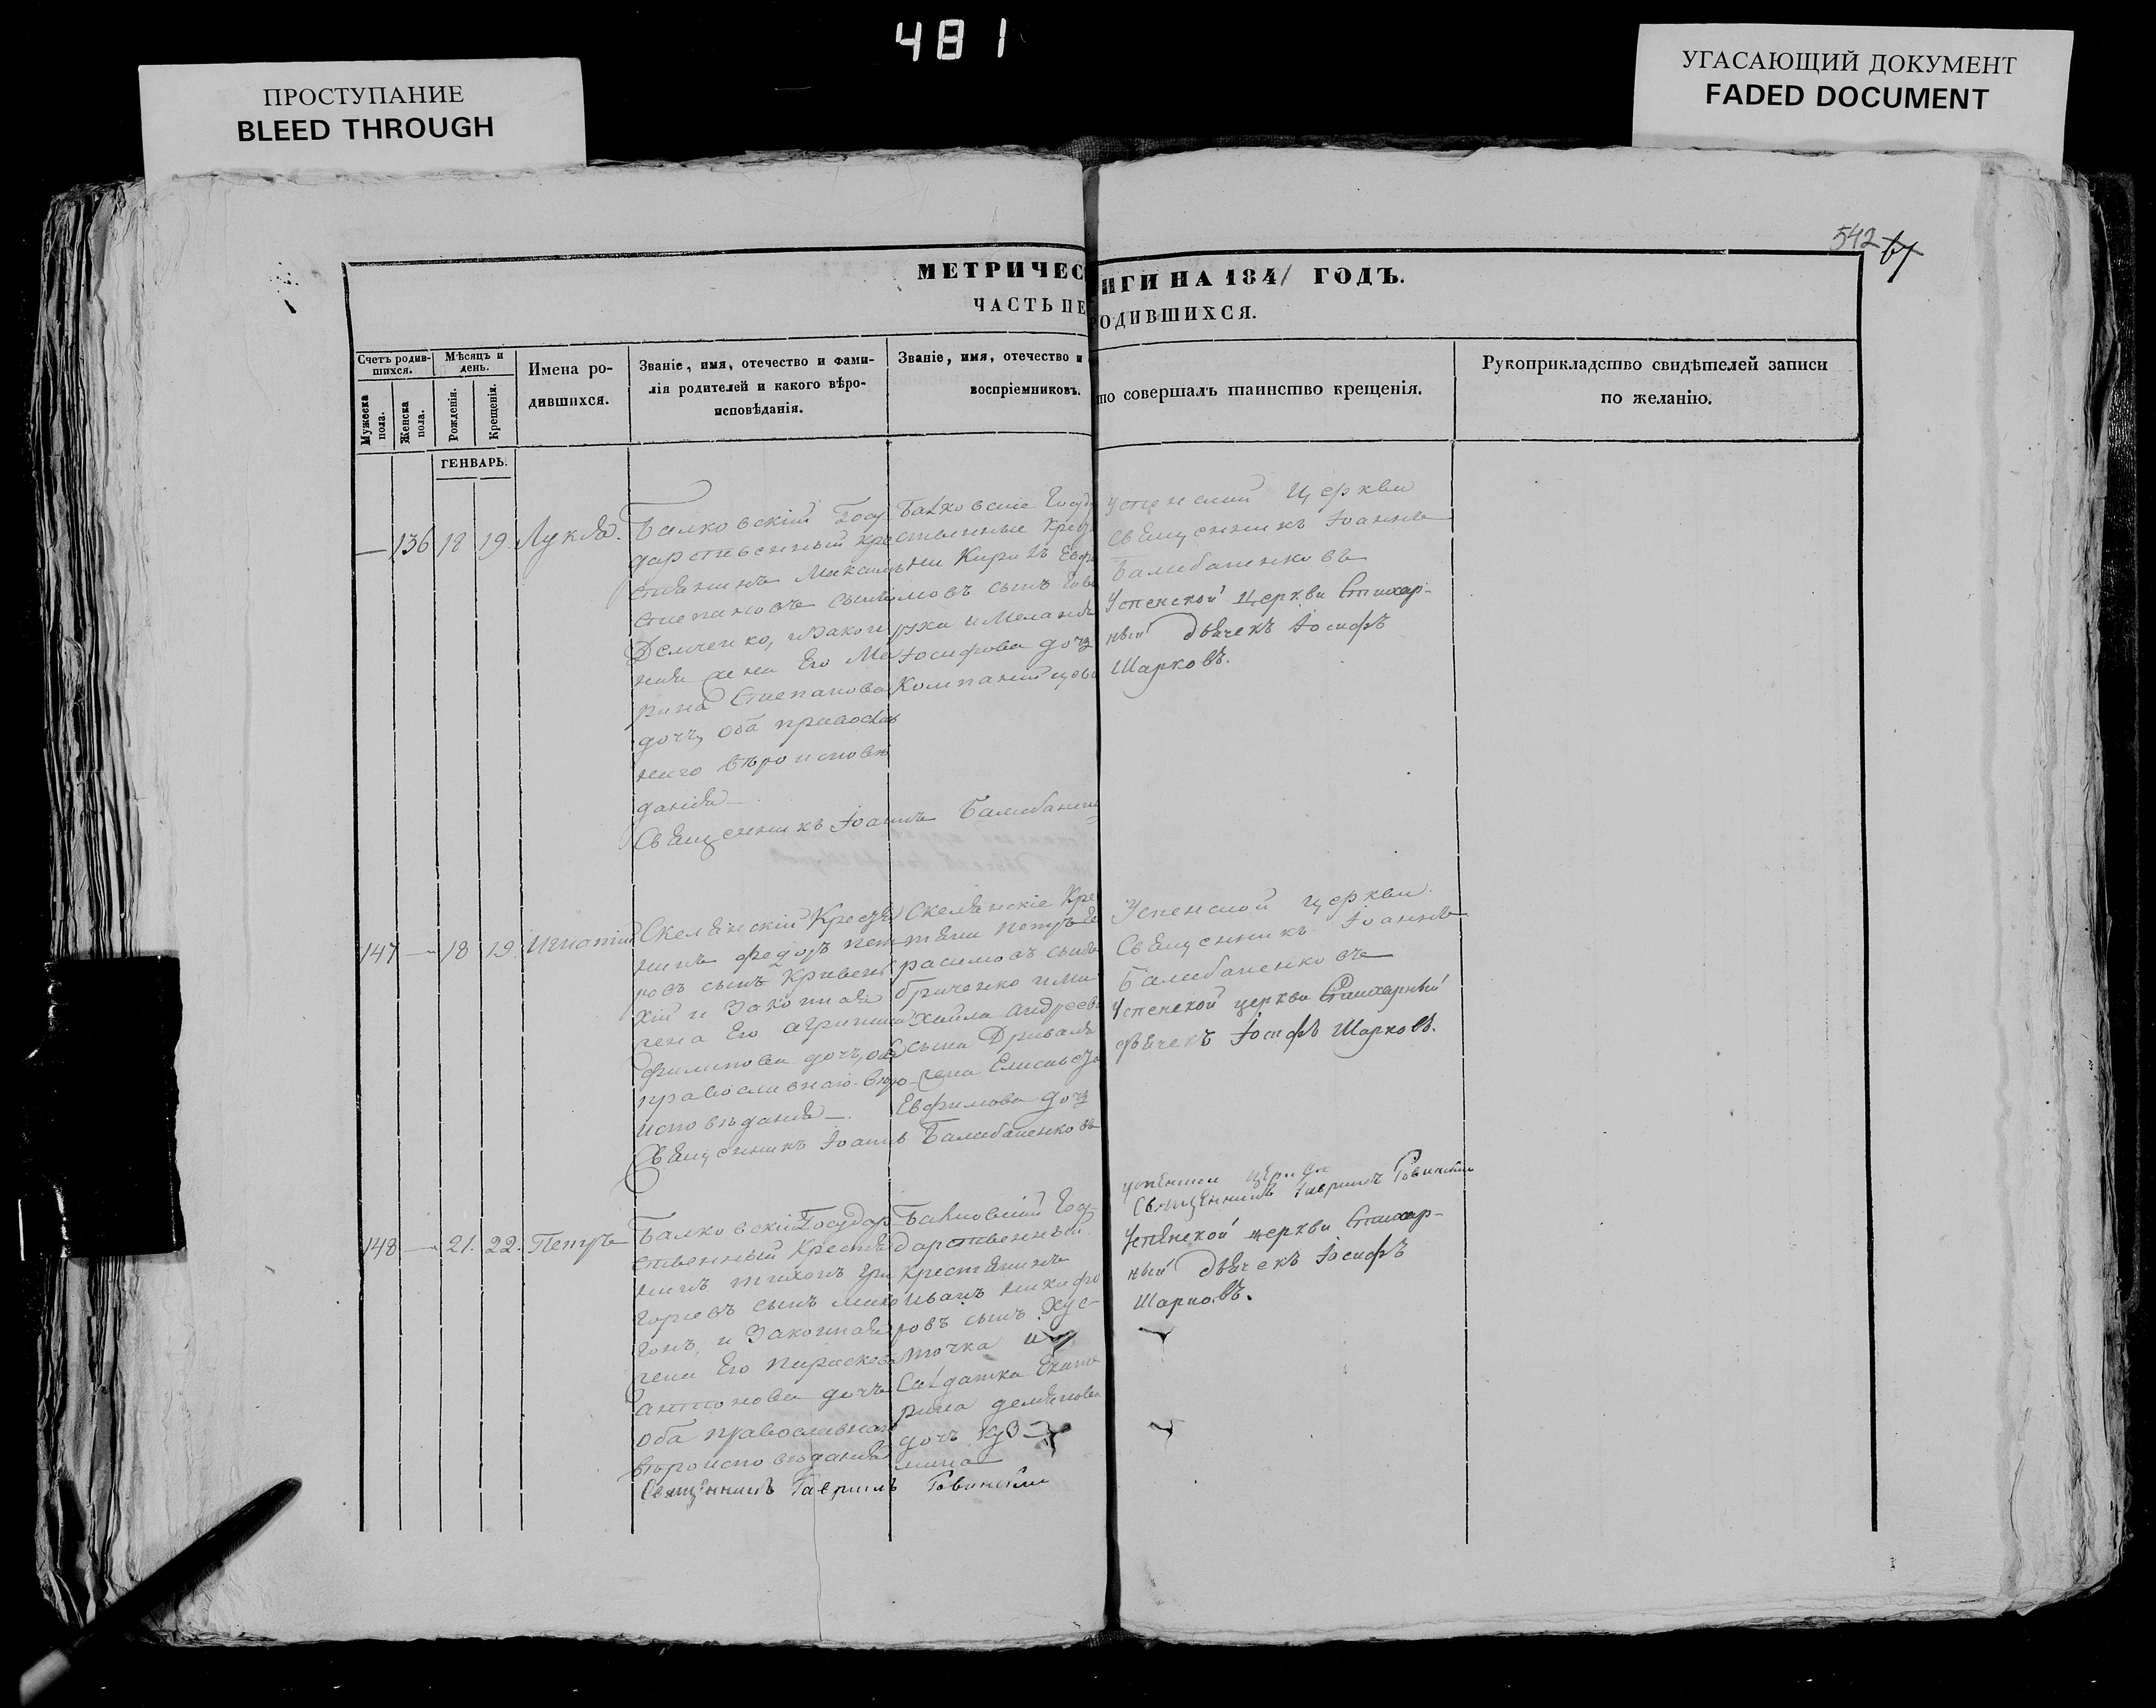 481
ПРОСТУПАНИЕ
BLEED THROUGH
УГАСАЮЩИЙ ДОКУМЕНТ
FADED DOCUMENT
542
МЕТРИЧЕС ИГИ НА 1841 ГОДЪ.
ЧАСТЬ ПЕ РОДИВШИХСЯ.
Счетъ родив-
шихся.
Мужеска
пола.
Женска
пола.
Мѣсяцъ и
день.
Рожденія.
Крещенія.
Имена ро-
дившихся.
Званіе, имя, отечество и фами-
лія родителей и какого вѣро-
исповѣданія.
Званіе, имя, отечество и
воспріемниковъ.
то совершалъ таинство крещенія.
Рукоприкладство свидѣтелей записи
по желанію.
ГЕНВАРЬ.
— 136 18 19. Лукія.
Балковскій Госу
дарственный кре
стянинъ Максимъ
Степановъ сынъ
Демченко, и закон
ная жена Его Ма
рина Степанова
дочь, оба православ
наго вѣроисповѣ
данія —
Священникъ Іоаннъ
Балковскіе Госуд
ственные Крес
не Кирилъ Ефи
мовъ сынъ
и Меланія
Іосифова дочь
Успенской Церкви
Священникъ Іоаннъ
Балабаненковъ
Успенской Церкви Стихар-
ный дьячекъ Іосифъ
Шарковъ.
147 — 18 19. Игнатій
Скелянскій Крестя
нинъ Федоръ пет
ровъ сынъ Кривень
кій и Законная
жена Его Агрипина
Филипова дочь, оба
православнаго вѣро-
исповѣданія —.
Священникъ Іоаннъ Балабаненковъ
Скелянскіе Кре
тяни Петръ Ге
расимовъ сынъ
Гриченко и Ми
хайла Андреева
сына
жена Елисавета
Евфимова дочь
Успенской церкви
Священникъ Іоаннъ
Балабаненковъ
Успенской церкви Стихарный
дьячекъ Іосифъ Шарковъ.
148 — 21. 22. Петръ
Балковскій Государ
ственный Крестя
нинъ Тихонъ Гри
горьевъ сынъ
и Законная
жена Его Параскева
Антонова дочь
оба православнаго
вѣроисповѣданія
Священникъ Гавріилъ Ровинскій
Балковскій Госу-
дарственный
Крестянинъ
Иванъ Никифо
ровъ сынъ Хус-
точка и
Салдатка Екате
рина Демянова
дочь Куз-
мина
Успенской церкви
Священникъ Гавріилъ Ровинскій
Успенской церкви Стихар-
ный дьячекъ Іосифъ
Шарковъ.